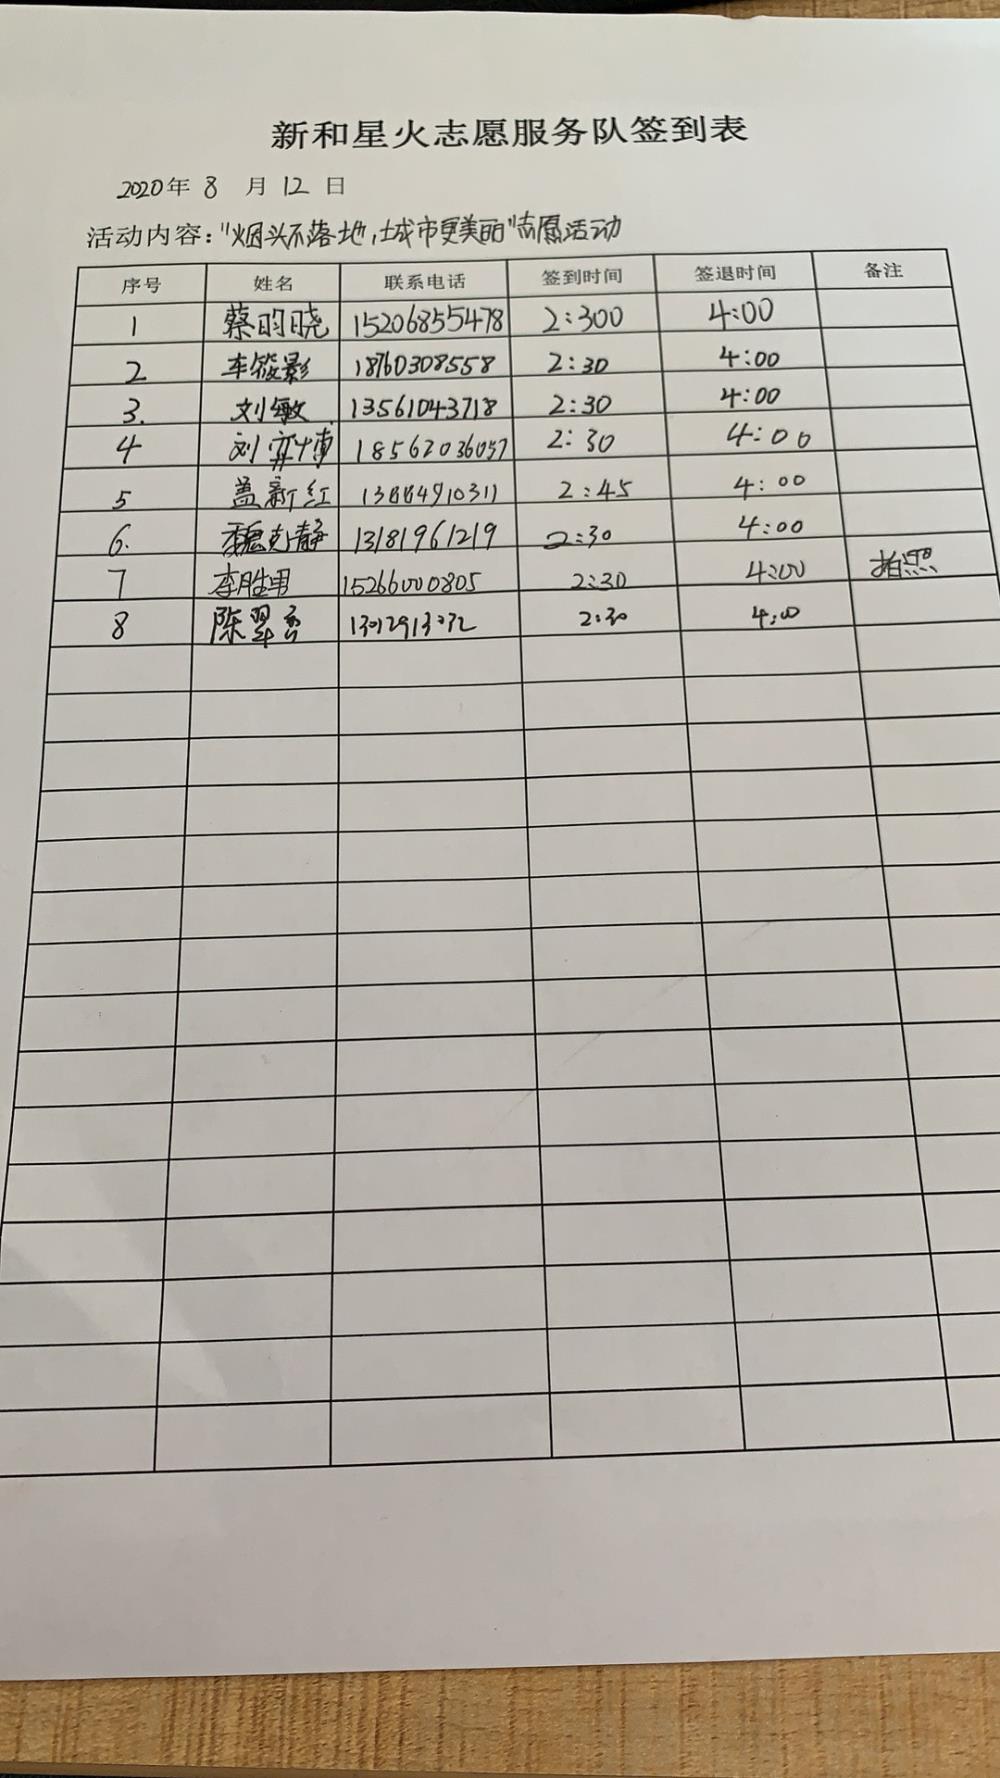 新和星火志愿服务队签到表
2020年 8 月 12 日
活动内容："烟头不落地,城市更美丽"志愿活动
序号 姓名 联系电话 签到时间 签退时间 备注
1 蔡昀晓 15206855478 2:300 4:00
2 车筱影 18760308558 2:30 4:00
3. 刘敏 13561043718 2:30 4:00
4 刘弈博 18562036057 2:30 4:00
5 盖新红 13884910311 2:45 4:00
6. 魏克静 13181961219 2:30 4:00
7 李胜男 15266000805 2:30 4:00 拍照
8 陈翠 2:30 4:00